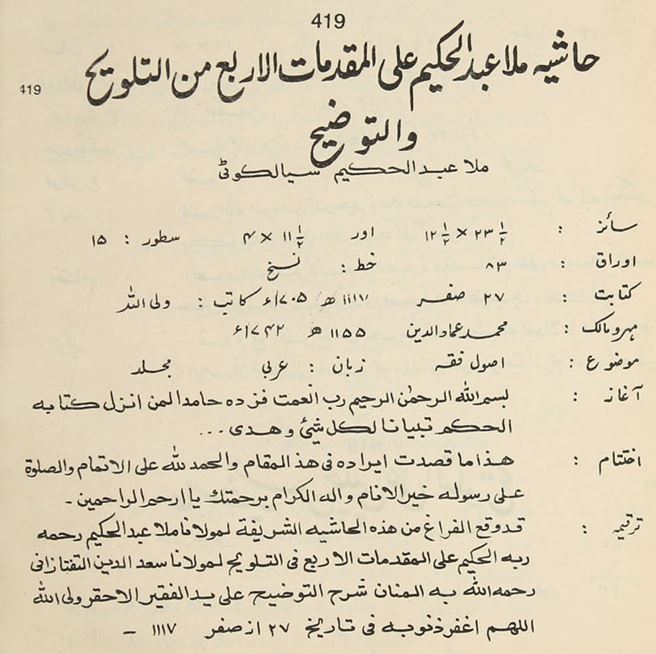 419
حاشیہ ملا عبد الحکیم علی المقدمات الاربع من التلویح
419
والتوضیح
ملا عبد الحکیم سیالکوٹی
سائز : ۲۳ ½ × ۱۲ ½ اور ۱۱ ½ × ۴ سطور : ۱۵
اوراق : ۸۳ خط : نسخ
کتابت : ۲۷ صفر ۱۱۱۷ھ/۱۷۰۵ء کاتب : ولی اللہ
مہر و مالک : محمد عماد الدین ۱۱۵۵ھ ۱۷۴۲ء
موضوع : اصول فقہ زبان : عربی مجلد
آغاز : بسم اللہ الرحمٰن الرحیم رب انعمت فزدہ حامدا لمن انزل کتابہ
الحکم تبیانا لکل شیٔ و ھدی ...
اختتام : ھذا ما قصدت ایرادہ فی ھذ المقام والحمد للہ علی الاتمام والصلوۃ
علی رسولہ خیر الانام والہ الکرام برحمتك یا ارحم الراحمین ۔
ترقیمہ : قد وقع الفراغ من ھذہ الحاشیہ الشریفۃ لمولانا ملا عبد الحکیم رحمہ
ربہ الحکیم علی المقدمات الاربع فی التلویح لمولانا سعد الدین التفتازانی
رحمہ اللہ بہ المنان شرح التوضیح علی ید الفقیر الاحقر ولی اللہ
اللھم اغفر ذنوبہ فی تاریخ ۲۷ از صفر ۱۱۱۷ ۔